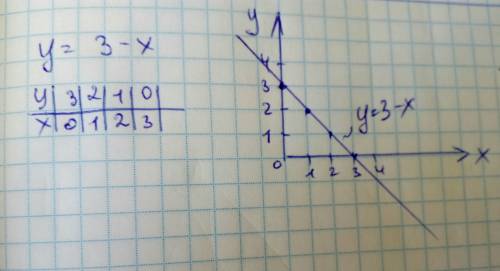 y = 3 - x
y 3 2 1 0
x 0 1 2 3
y
4
3
2
1
0 1 2 3 4 x
y=3-x